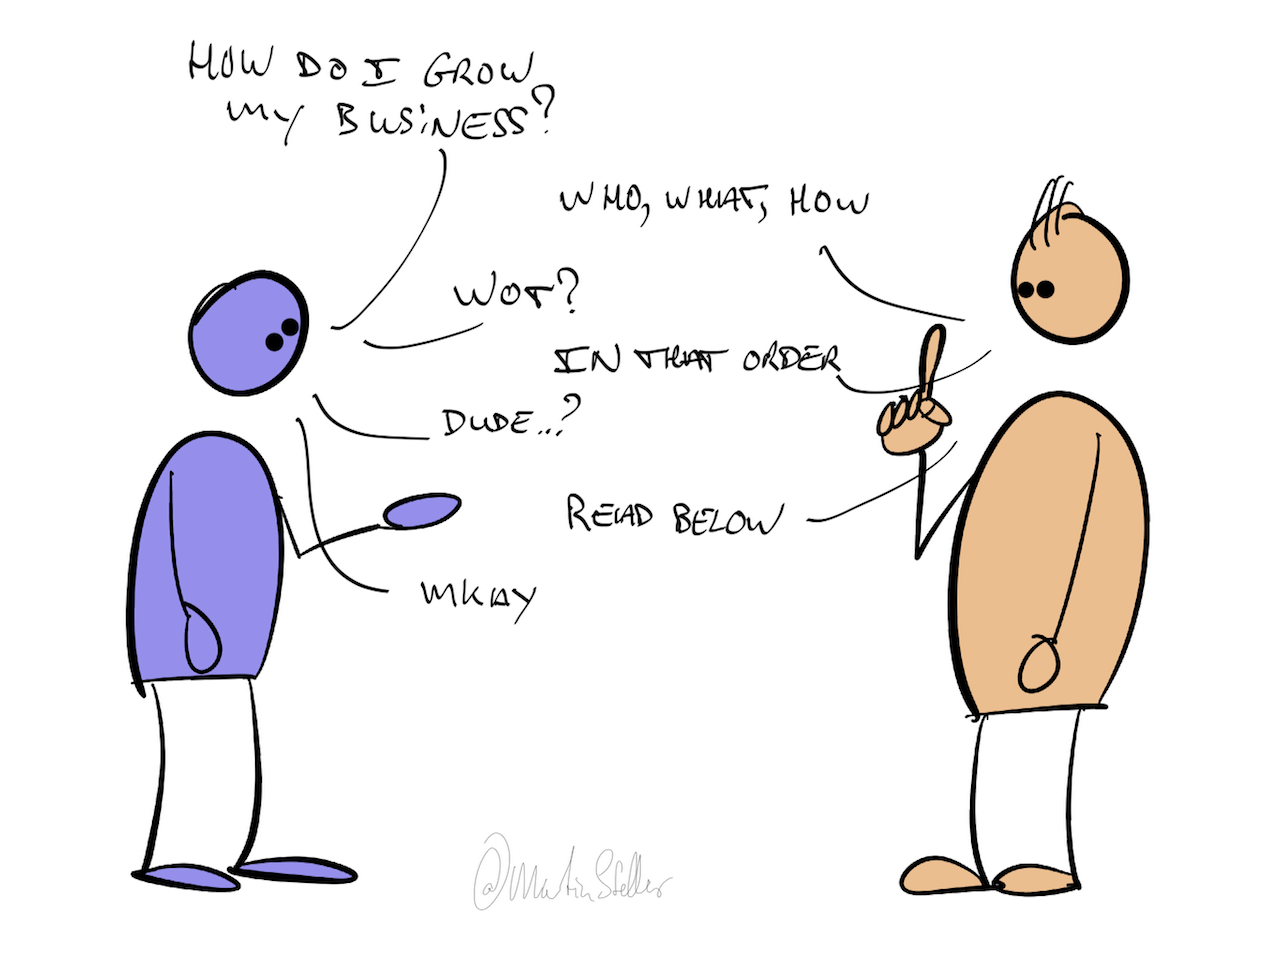 HOW DO I GROW
MY BUSINESS?
WHO, WHAT, HOW
WOT?
IN THAT ORDER
DUDE...?
READ BELOW
MKAY
@MartinStellar